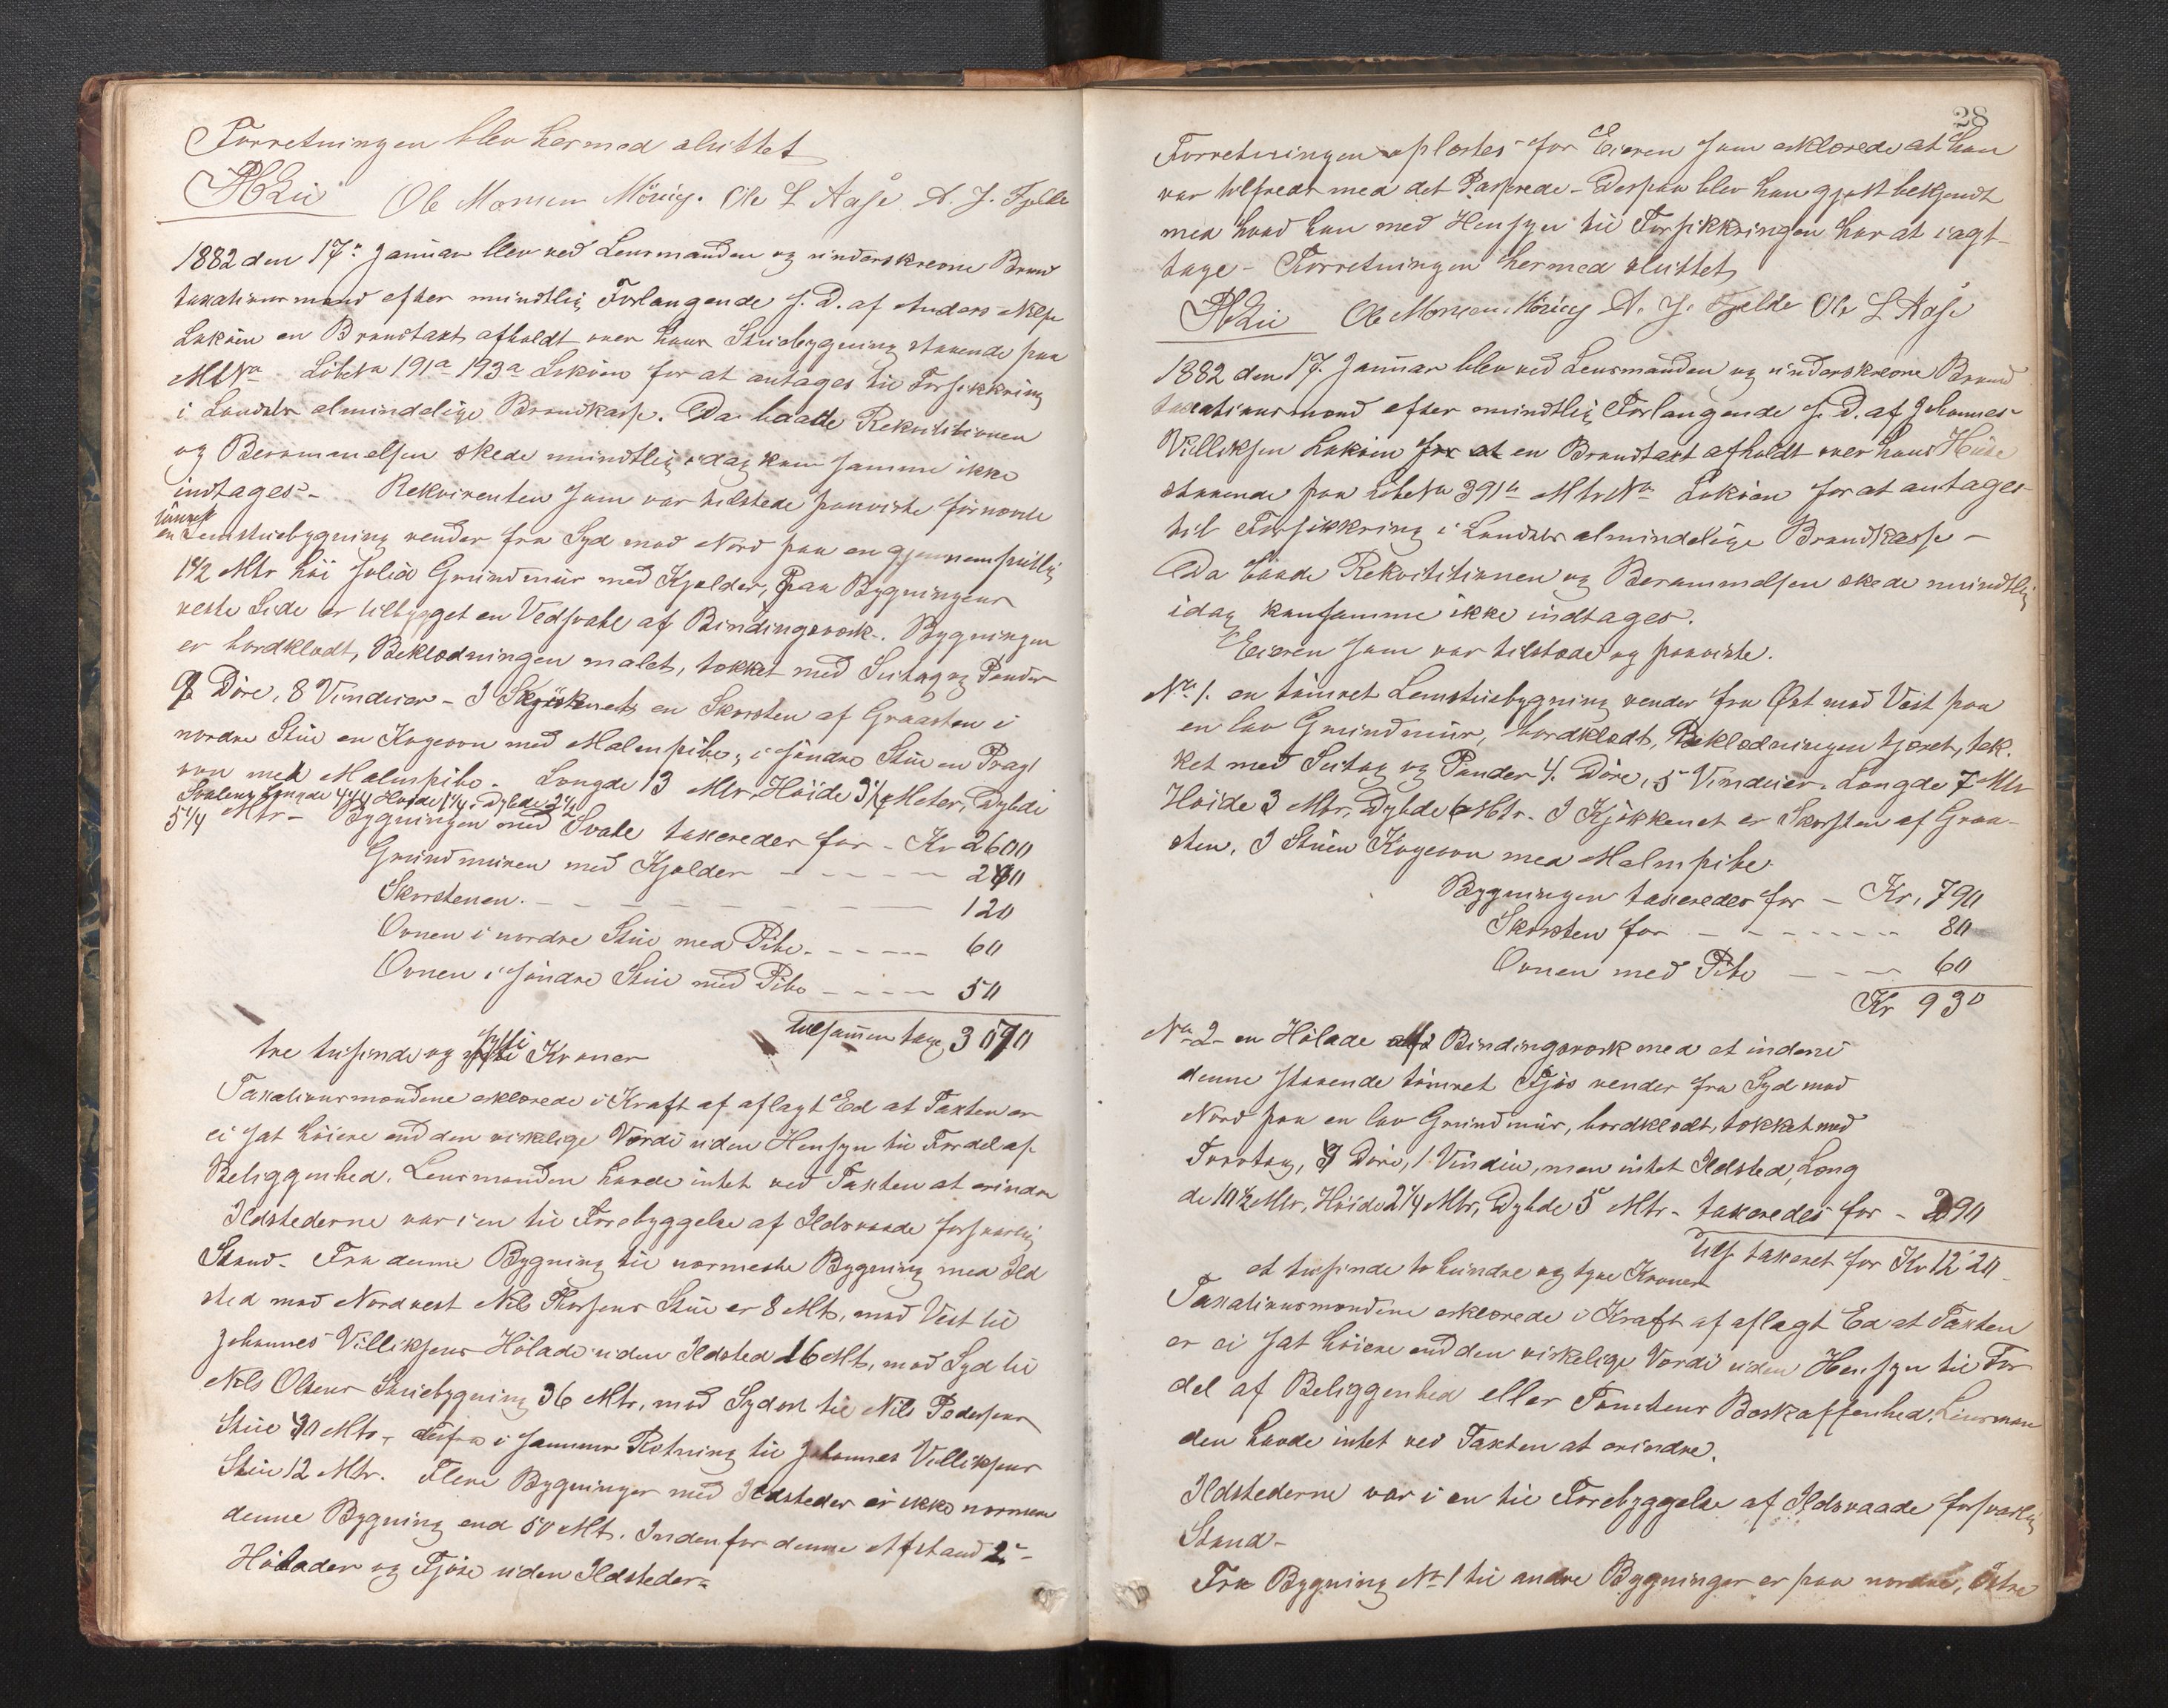 Forretningen blev hermed sluttet
Ole Monsen Mövig. Ole L Aase A. J. Fjelde
1882 den 17de Januar blev ved Lensmanden og underskrevne Brand
taxationsmænd efter mundtlig Forlangende s. D. af Anders Nilss
Lekven en Brandtaxt afholdt over hans Stuebygning staaende paa
Mtr No Löbe No 191a 193a Lekven for at antages til Forsikkring
i Landets almindelige Brandkasse. Da baade Rekvisitionen
og Berammelsen skede mundtlig idag kan samme ikke
indtages. - Rekvirenten som var tilstede paaviste
en tömret Lemstuebygning vender fra Syd mod Nord paa en
1 1/2 Mtr höi solid Grundmur med Kjelder, Paa Bygningens
veste Side er tilbygget en Vedsvale af Bindingsverk. Bygningen
er bordklædt, Beklædningen malet, tækket med Sutag og Pander
9 Döre, 8 Vinduer - I Kjökkenet en Skorsten af Graasten i
nordre Stue en Kogeovn med Malmpibe, i söndre Stue en Pragt
ovn med Malmpibe. Længde 13 Mtr, Höide 3 1/4 Meter, Dybde
Svalens Længde 4 1/4 Höide 1 1/4, Dybde 2 1/2
5 1/4 Mtr - Bygningen med Svale taxeredes for - Kr 2600
Grundmuren med Kjelder - - - - - 240
Skorstenen. - - - - - - - 120
Ovnen i nordre Stue med Pibe. - - - - 60
Ovnen i söndre Stue med Pibe - - - - 50
Tilsammen taxt 3070
tre tusinde og sytti Kroner
Taxationsmændene erklærede i Kraft af aflagt Ed at Taxten er
ei sat höiere end den virkelige Værdi uden Hensyn til Fordel af
Beliggenhed. Lensmanden havde intet ved Taxten at erindre
Ildstederne var i en til Forebyggelse af Ildsvaade forsvarlig
Stand. Fra denne Bygning til nærmeste Bygning med Ild
sted mod Nordvest Nils Thorsens Stue er 8 Mtr, mod Vest til
Johannes Villiksens Hölade uden Ildsted 16 Mtr, mod Syd til
Nils Olsens Stuebygning 36 Mtr, mod Sydost til Nils Pedersens
Stue 40 Mtr, derfra i samme Retning til Johannes Villiksens
Stue 12 Mtr. Flere Bygninger med Ildsteder er ikke nærmere
denne Bygning end 50 Mtr. Indenfor denne Afstand 2 -
Hölader og Fjöse uden Ildsteder.
28
Forretningen oplæstes for Eieren som erklærede at han
var tilfreds med det Passerede - Despaa blev han gjort bekjendt
med hvad han med Hensyn til Forsikkringen har at iagt
tage - Forretningen hermed sluttet
Ole Monsen Mövig A. J. Fjelde Ole L Aase
1882 den 17. Januar blev ved Lensmanden og underskrevne Brand
taxationsmænd efter mundtlig Forlangende s. D. af Johannes
Villiksen Lekven for at en Brandtaxt afholdt over hans Huse
staaende paa Löbe No 391a Mtr No Lekven for at antages
til Forsikkring i Landets almindelige Brandkasse -
Da baade Rekvisitionen og Berammelsen skede mundtlig
idag kan samme ikke indtages.
Eieren som var tilstede og paaviste.
No 1. en tömret Lemstuebygning vender fra Öst mod Vest paa
en lav Grundmur, bordklædt, Beklædningen tjæret, tæk
ket med Sutag og Pander 4 Döre, 5 Vinduer. Længde 7 Mtr
Höide 3 Mtr, Dybde 6 Mtr. I Kjökkenet er Skorsten af Graa-
sten, I Stuen Kogeovn med Malmpibe.
Bygningen taxeredes for - Kr. 790
Skorsten for - - - - - - 80
Ovnen med Pibe - - - 60
Kr 930
No 2 en Hölade af Bindingsverk med et inden i
denne staaende tömret Fjös vender fra Syd mod
Nord paa en lav Grundmur, bordklædt, tækket med
Torvtag, 7 Döre, 1 Vindue, men intet Ildsted, Læng
de 10 1/2 Mtr, Höide 2 1/4 Mtr, Dybde 5 Mtr - taxeredes for - 290
Tils. taxeret for Kr 1220
et tusinde to hundre og tyve Kroner
Taxationsmændene erklærede i Kraft af aflagt Ed at Taxten
er ei sat höiere end den virkelige Værdi uden Hensyn til For
del af Beliggenhed eller Tomtens Beskaffenhed. Lensman
den havde intet ved Taxten at erindre.
Ildstederne var i en til Forebyggelse af Ildsvaade forsvarlig
Stand -
Fra Bygning No 1 til andre Bygninger er paa nordre, östre